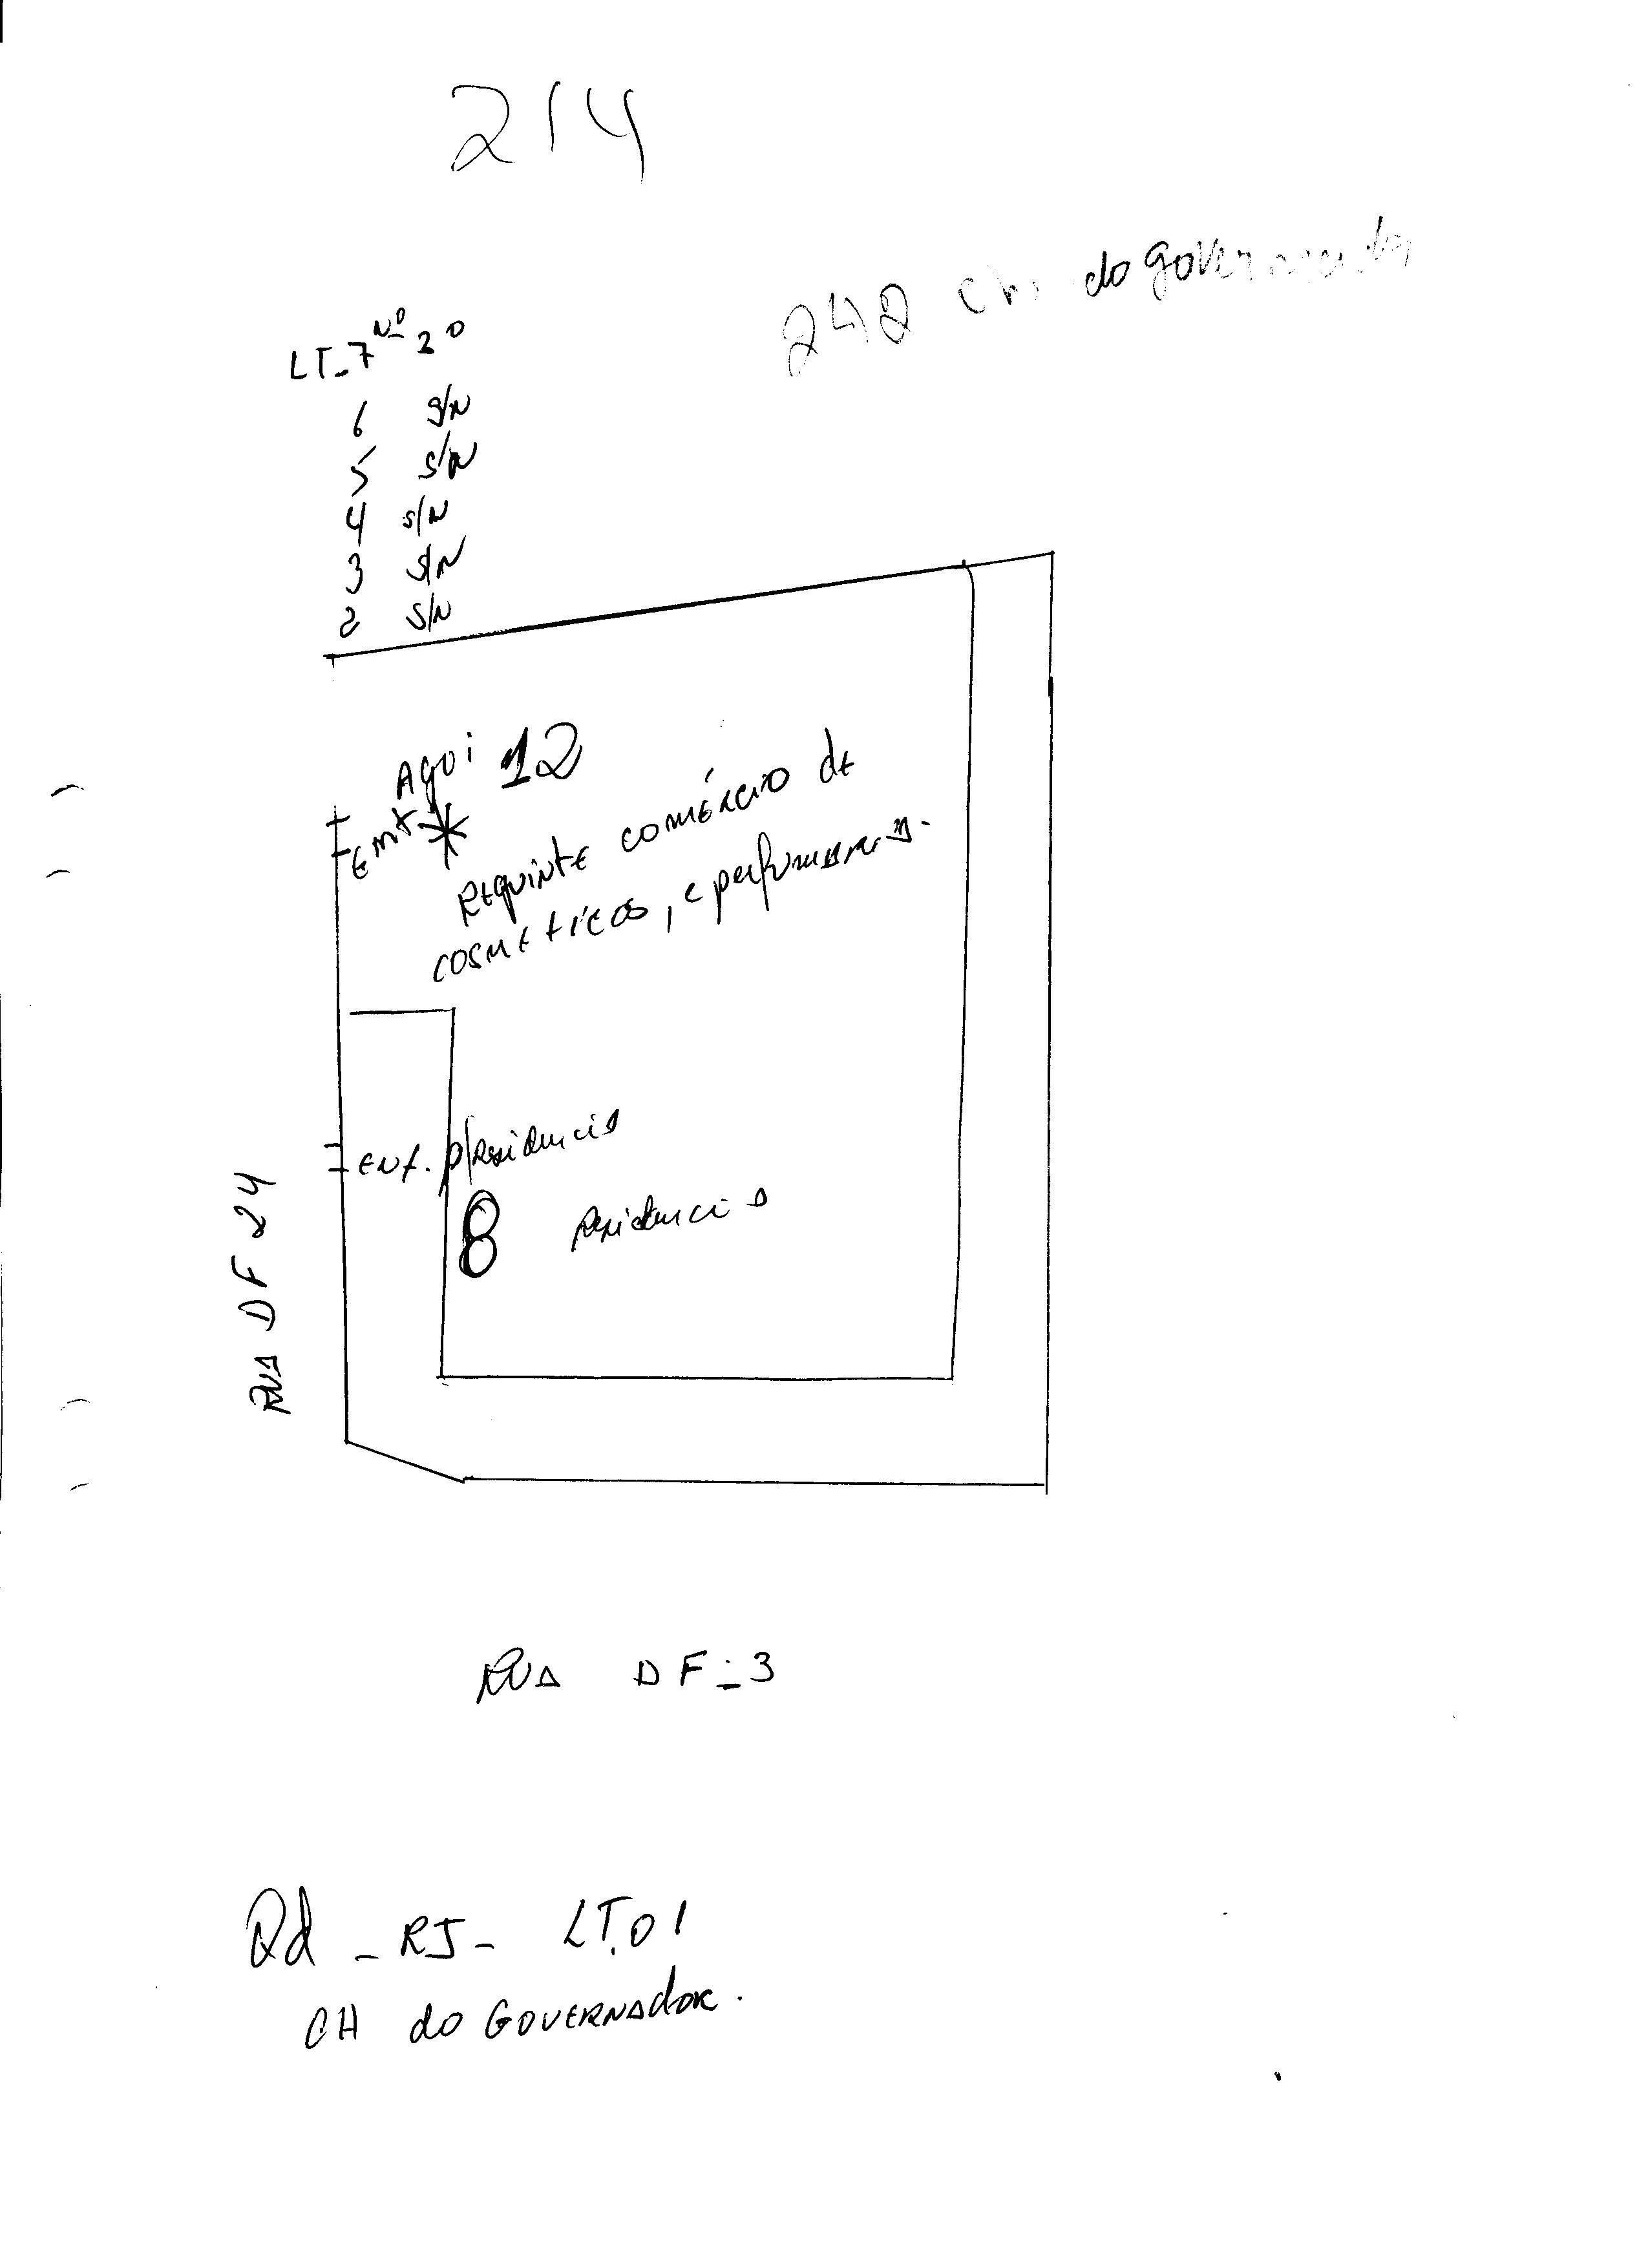 214
242 Ch. do governador
LT-7 Nº 20
6 S/N
5 S/N
4 S/N
3 S/N
2 S/N
AQUI 12
Ent
REQUINTE COMÉRCIO DE
COSMETICOS, e perfumaria.
ENT. p/Residencia
8 Residencia
RUA DF 24
RUA DF-3
Qd - RJ - LT.01
CH do GOVERNADOR.